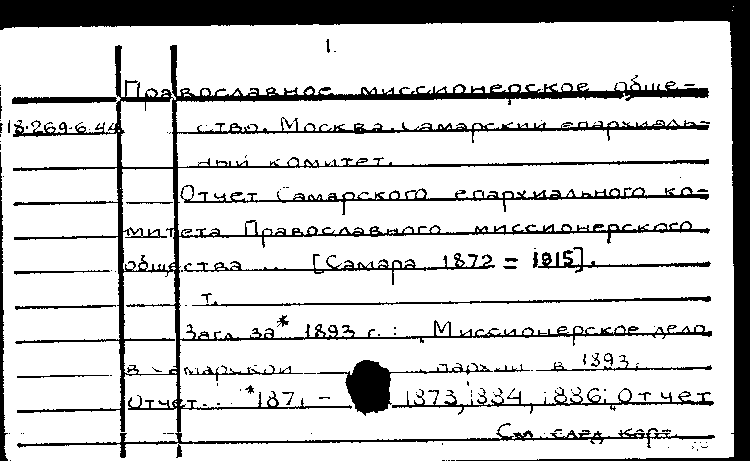 1.
Православное миссионерское обще-
18.269.6.44 ство. Москва. Самарский епархиаль-
ный комитет.
Отчет Самарского епархиального ко-
митета Православного миссионерского
общества ... [Самара 1872 = 1915].
т.
Загл. за* 1893 г.: Миссионерское дело
в Самарской епархии в 1893;
Отчет.. *1871 - 1873, 1884, 1886; Отчет
См. след карт.